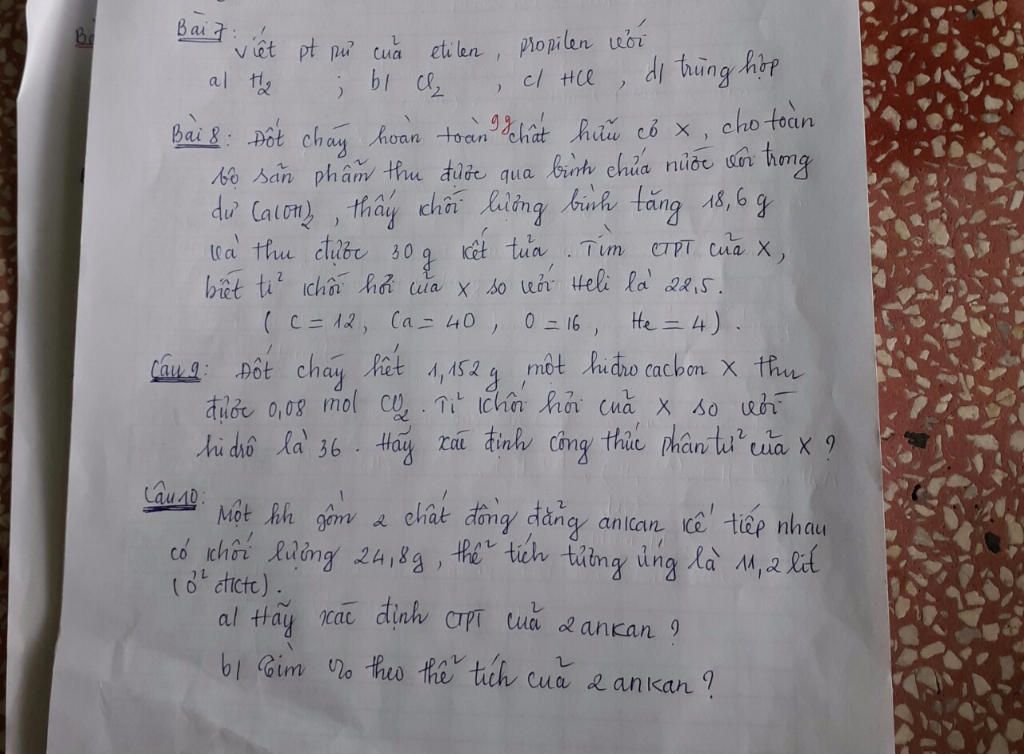 Bài 7:
Viết pt pứ của etilen, propilen với
a/ H2 ; b/ Cl2 , c/ HCl , d/ trùng hợp
Bài 8: Đốt cháy hoàn toàn 9g chất hữu cơ X, cho toàn
bộ sản phẩm thu được qua bình chứa nước vôi trong
dư Ca(OH)2 , thấy khối lượng bình tăng 18,6 g
và thu được 30 g kết tủa. Tìm CTPT của X,
biết tỉ khối hơi của X so với Heli là 22,5.
( C = 12, Ca = 40 , O = 16 , He = 4 ) .
Câu 9: Đốt cháy hết 1,152 g một hiđro cacbon X thu
được 0,08 mol CO2. Tỉ khối hơi của X so với
hiđrô là 36. Hãy xác định công thức phân tử của X ?
Câu 10:
Một hh gồm 2 chất đồng đẳng ankan kế tiếp nhau
có khối lượng 24,8g , thể tích tương ứng là 11,2 lit
( ở đktc).
a/ Hãy xác định CTPT của 2 ankan ?
b/ Tìm % theo thể tích của 2 ankan ?